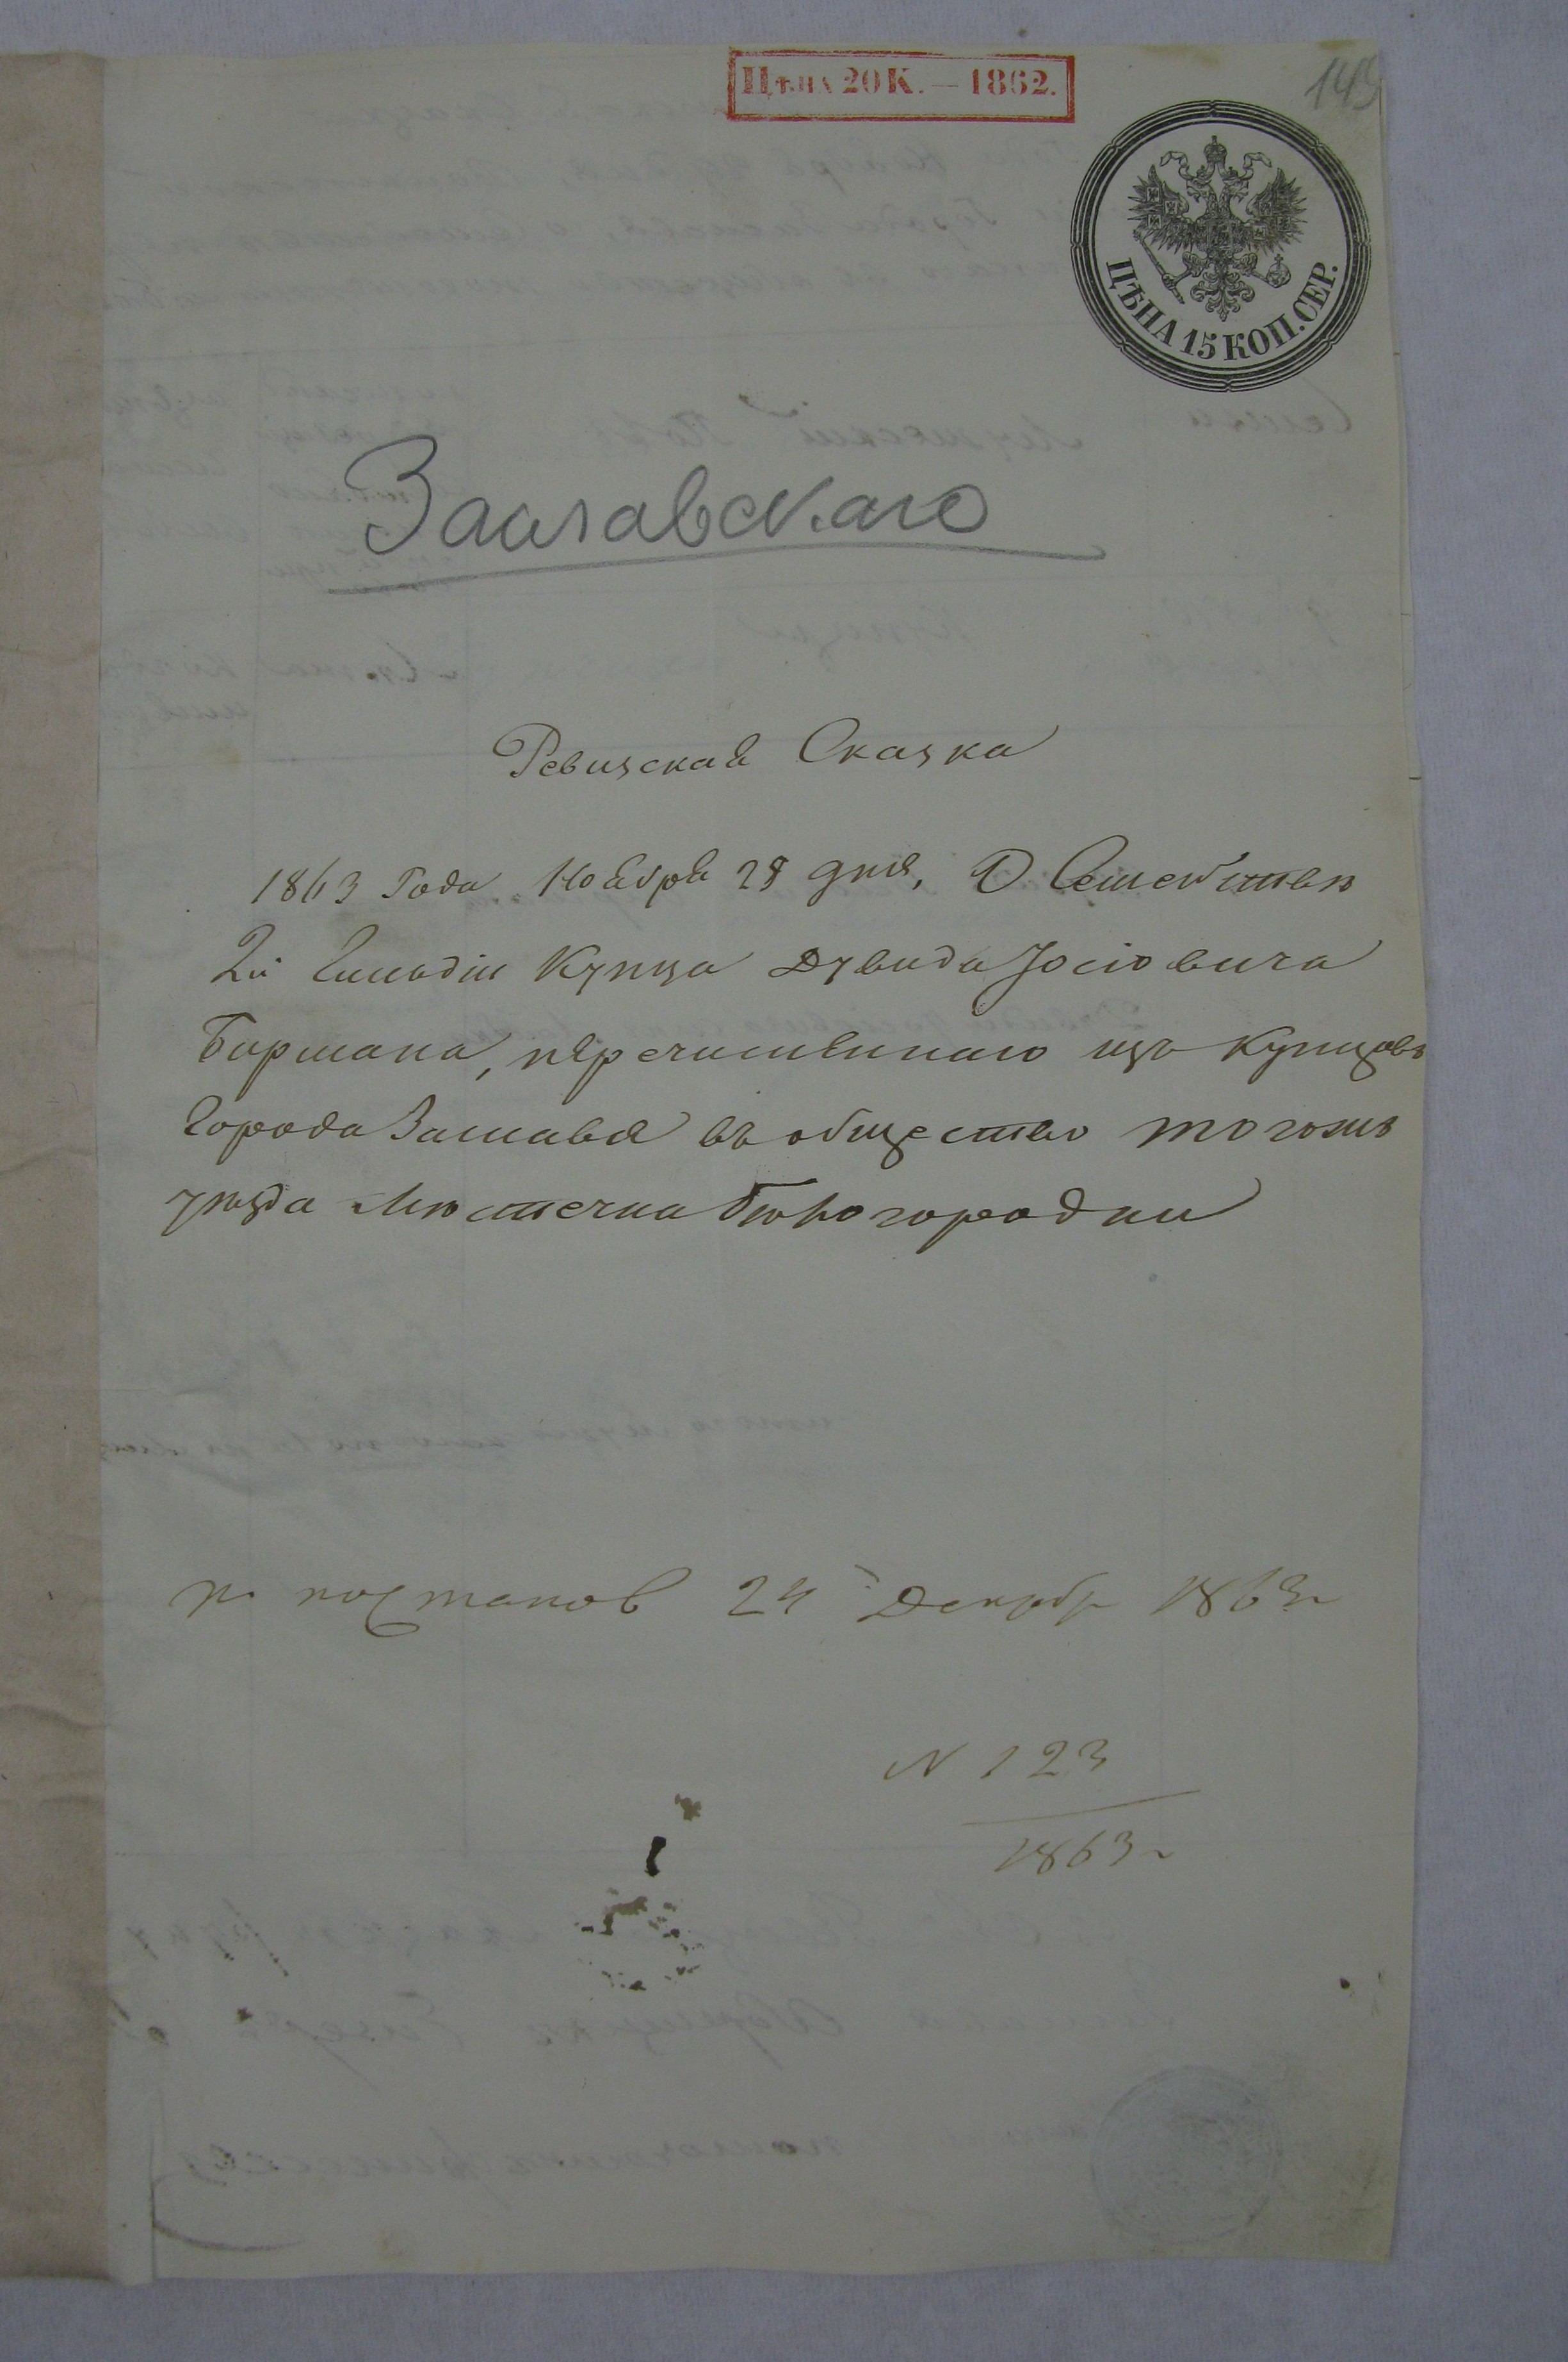 Цѣна 20 К. — 1862.
149
ЦѢНА 15 КОП. СЕР.
Заславскаго
Ревизская Сказка
1863 Года Ноября 28 дня, О Семействѣ
2й Гильдіи Купца Дувида Іосіовича
Бирмана, пѣречисленнаго изъ купцовъ
Города Заславя въ общество тогожъ
уѣзда Мѣстечка Бѣлогородки
по постанов 24 Декабр 1863 г
N 123
1863 г